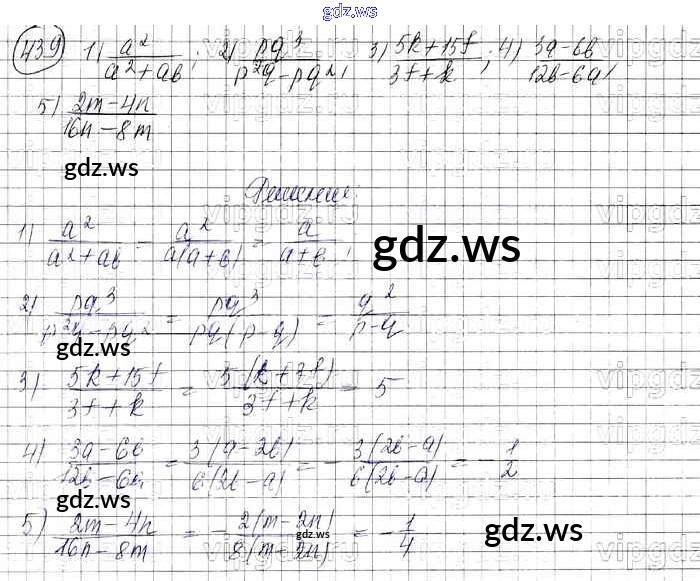 gdz.ws
439 1) a²/(a²+ab); 2) pq³/(p²q-pq²); 3) (5k+15f)/(3f+k); 4) (3a-6b)/(12b-6a);
5) (2m-4n)/(16n-8m)
gdz.ws
Решение:
1) a²/(a²+ab) = a²/(a(a+b)) = a/(a+b);
gdz.ws
2) pq³/(p²q-pq²) = pq³/(pq(p-q)) = q²/(p-q)
gdz.ws
3) (5k+15f)/(3f+k) = 5(k+3f)/(3f+k) = 5
4) (3a-6b)/(12b-6a) = 3(a-2b)/(6(2b-a)) = -3(2b-a)/(6(2b-a)) = -1/2
gdz.ws
5) (2m-4n)/(16n-8m) = -2(m-2n)/(8(m-2n)) = -1/4
gdz.ws